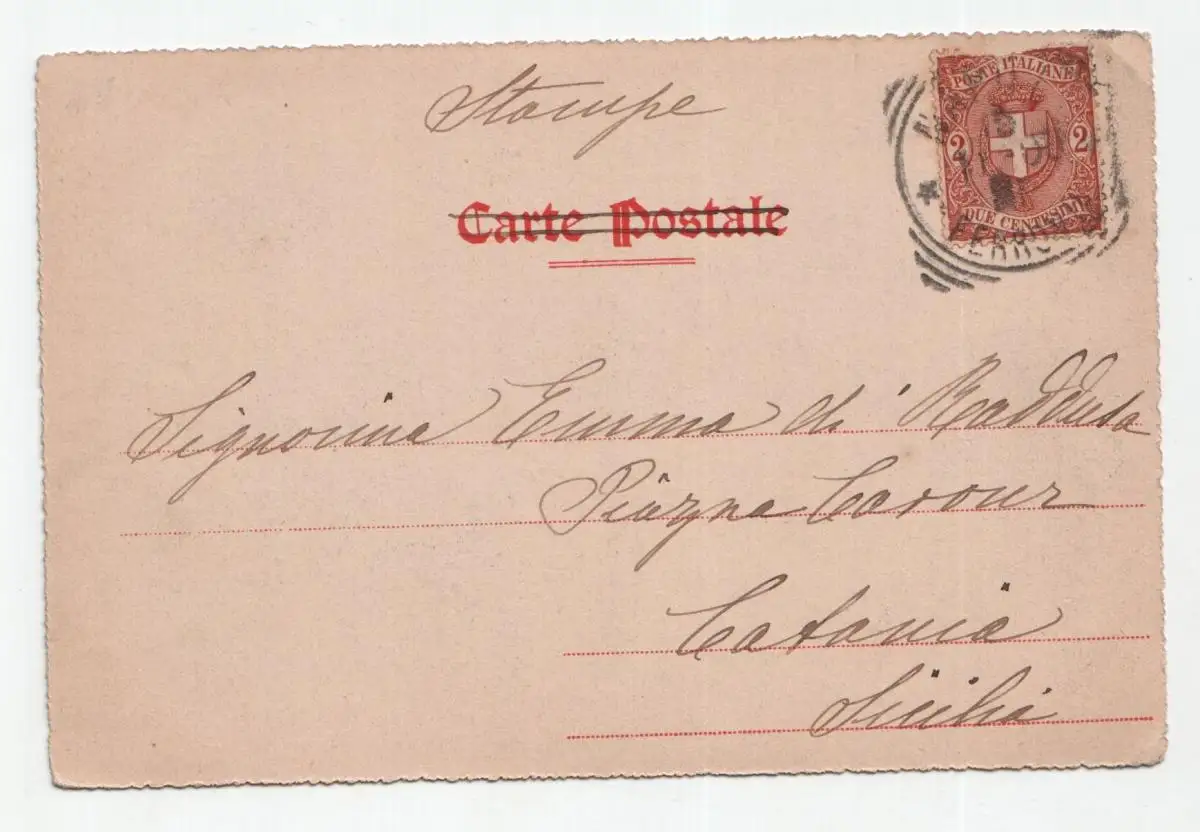 Stampe
POSTE ITALIANE
2 2
DUE CENTESIMI
Carte Postale
Signorina Emma di Raddusa
Piazza Cavour
Catania
Sicilia